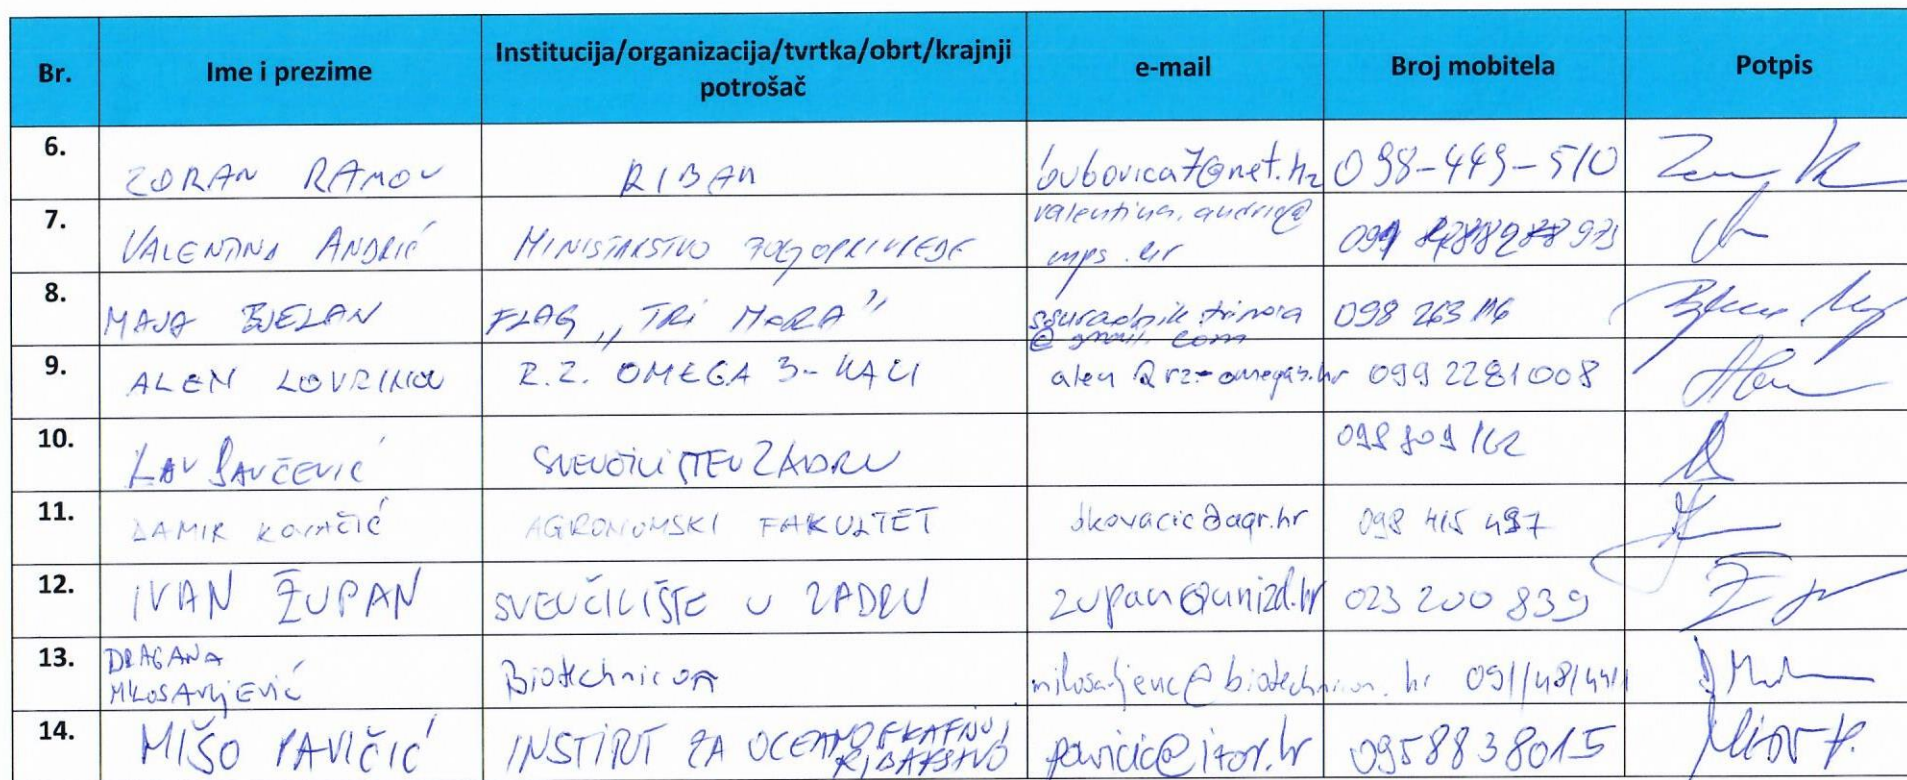 Br. Ime i prezime Institucija/organizacija/tvrtka/obrt/krajnji potrošač e-mail Broj mobitela Potpis
6. ZORAN RAMOV RIBAR bubovica7@net.hr 098-449-510
7. VALENTINA ANDRIĆ MINISTARSTVO POLJOPRIVREDE valentina.andric@mps.hr
8. MAJA BJELAN FLAG „TRI MORA" ssuradnik.trimora@gmail.com 098 263 116
9. ALEN LOVRINOV R.Z. OMEGA 3-KALI alen@rz-omega3.hr 099 2281008
10. LAV BAVČEVIĆ SVEUČILIŠTE U ZADRU 098 809 162
11. DAMIR KOVAČIĆ AGRONOMSKI FAKULTET dkovacic@agr.hr 098 415 497
12. IVAN ŽUPAN SVEUČILIŠTE U ZADRU zupan@unizd.hr 023 200 839
13. DRAGANA MILOSAVLJEVIĆ Biotechnicon
14. MIŠO PAVIČIĆ INSTITUT ZA OCEANOGRAFIJU I RIBARSTVO pavicic@izor.hr 0958838015